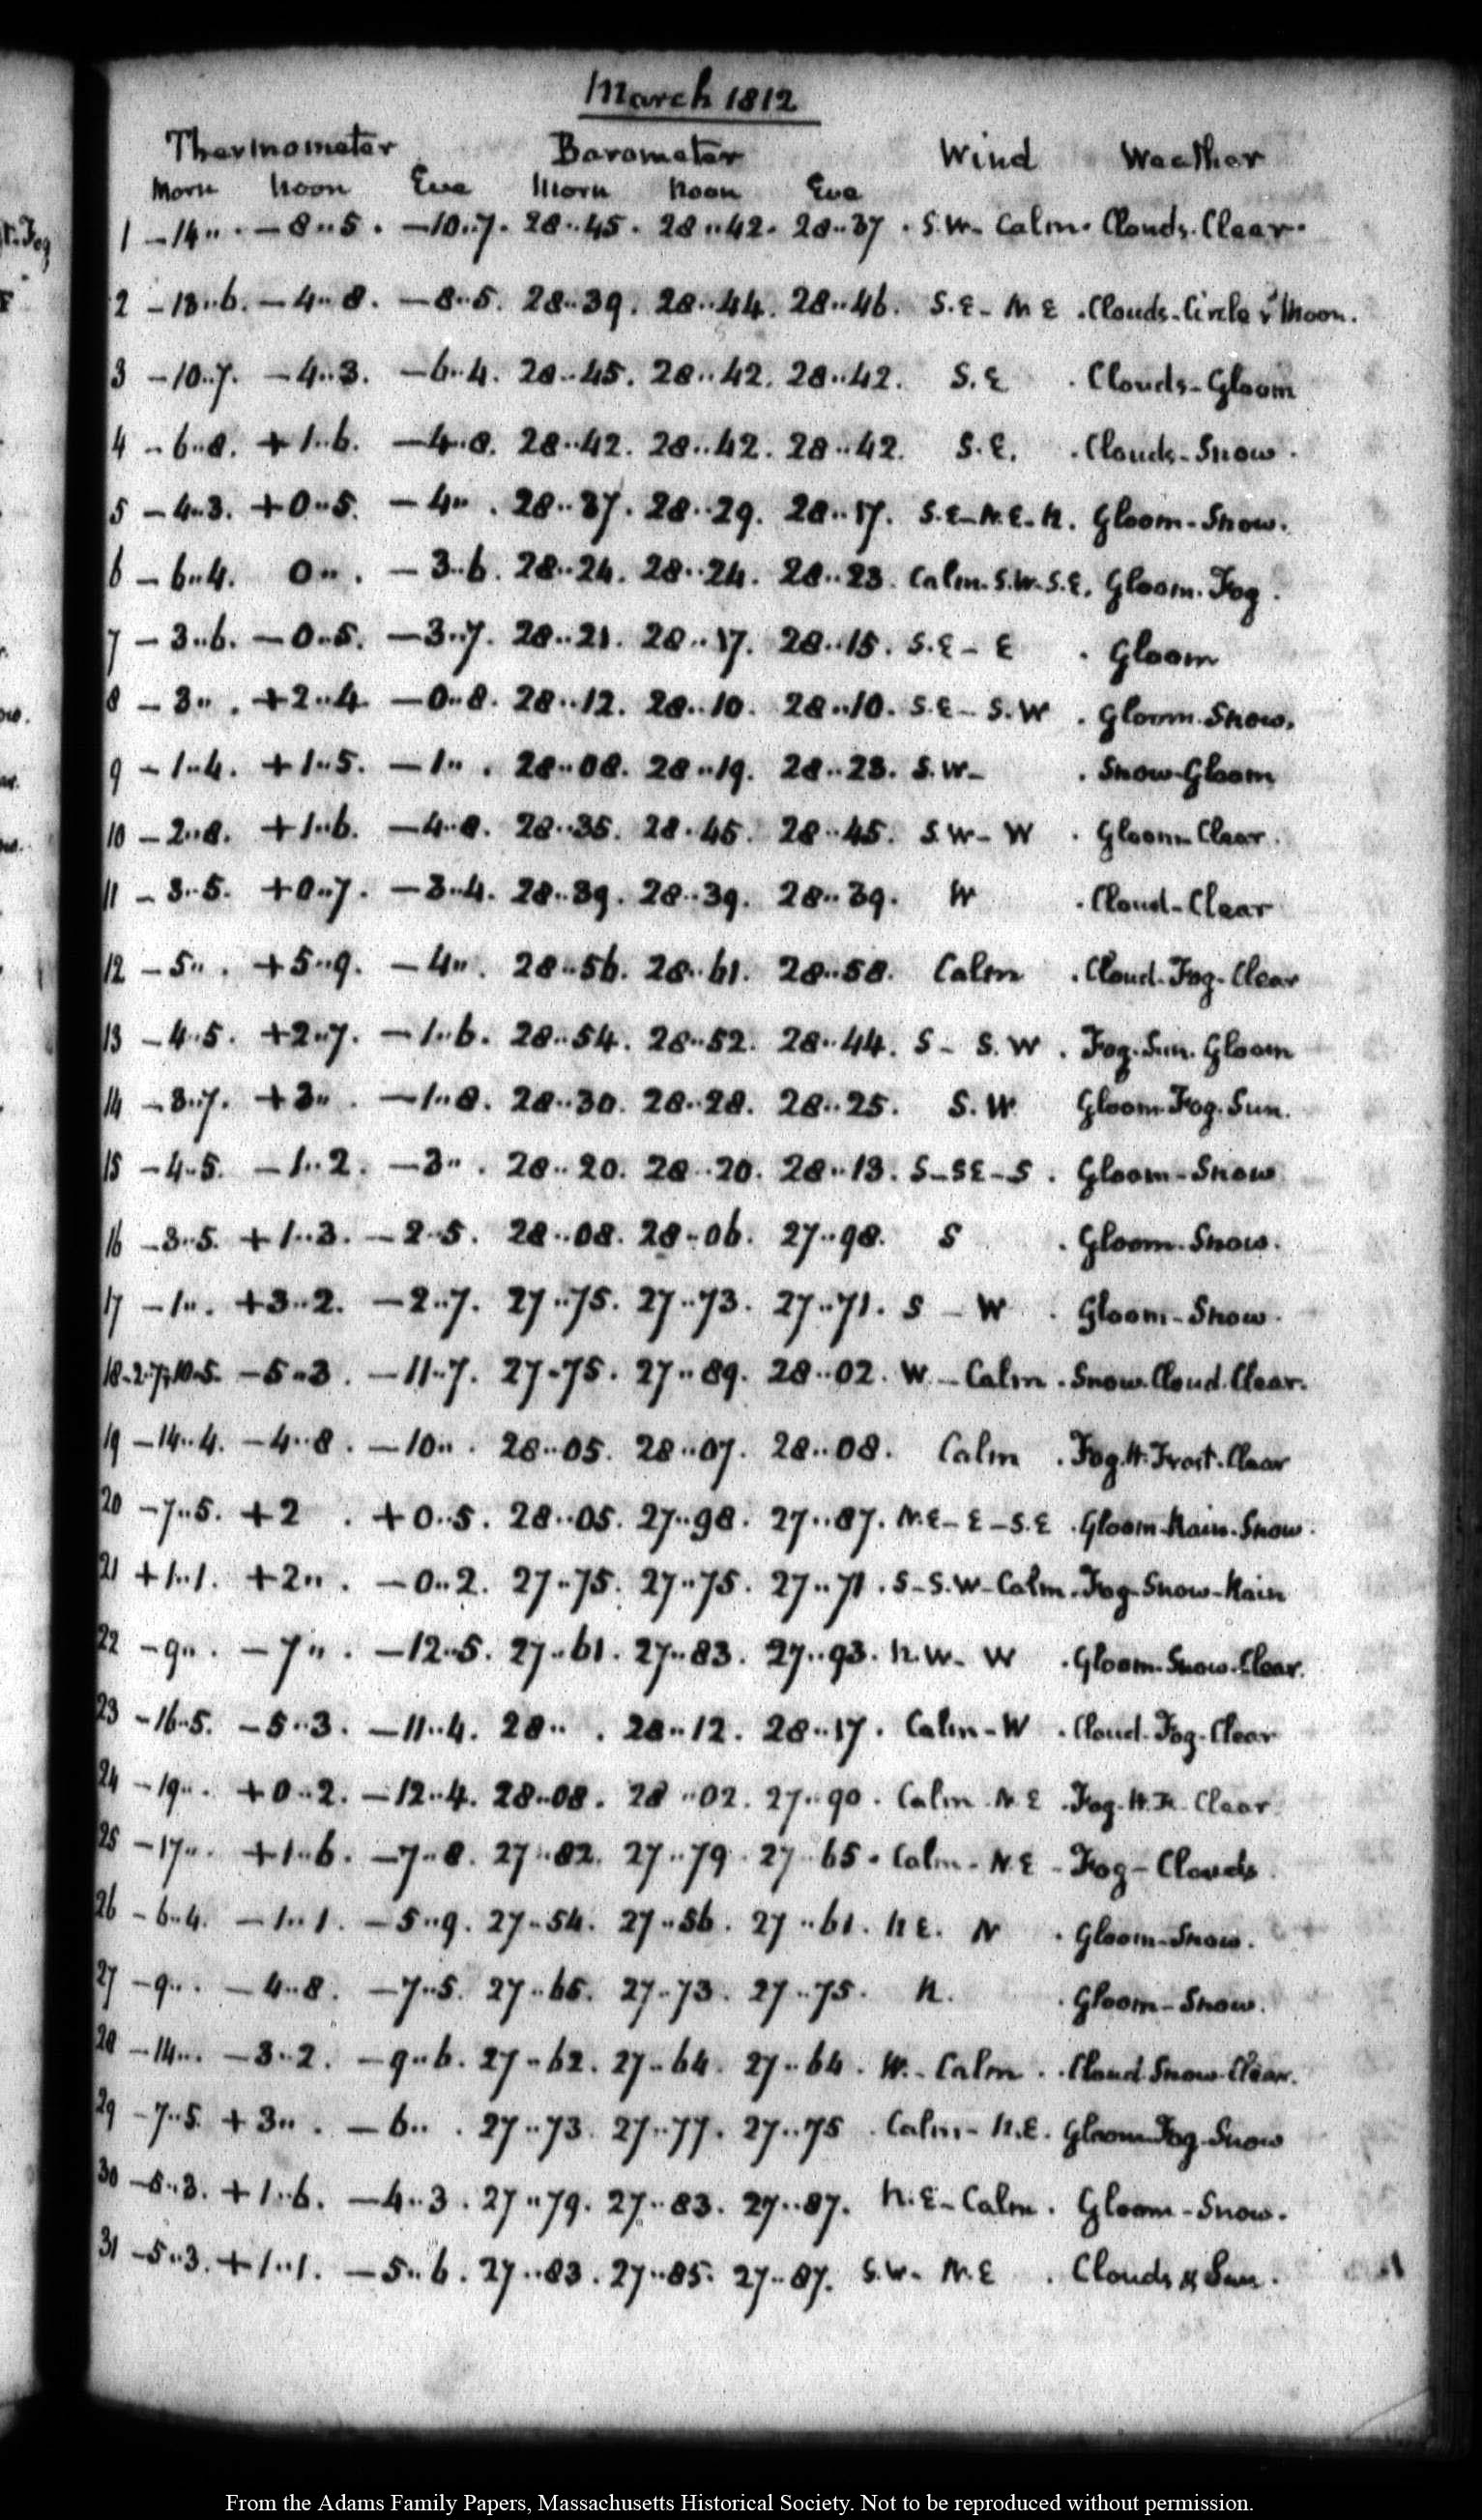 March 1812
Thermometer Barometer Wind Weather
Morn Noon Eve Morn Noon Eve
1 -14.. . -8..5. -10..7. 28..45. 28..42. 28..37. S.W. Calm. Clouds. Clear.
2 -13..6. -4..8. -8..5. 28..39. 28..44. 28..46. S.E- N E. Clouds-Circle Moon.
3 -10..7. -4..3. -6..4. 28..45. 28..42. 28..42. S.E. Clouds-Gloom
4 -6..8. +1..6. -4..8. 28..42. 28..42. 28..42. S.E. Clouds-Snow.
5 -4..3. +0..5. -4.. . 28..37. 28..29. 28..17. S.E-N.E-N. Gloom-Snow.
6 -6..4. 0.. . -3..6. 28..24. 28..24. 28..23. Calm. S.W-S.E. Gloom. Fog.
7 -3..6. -0..5. -3..7. 28..21. 28..17. 28..15. S.E- E. Gloom
8 -3.. . +2..4. -0..8. 28..12. 28..10. 28..10. S.E- S.W. Gloom. Snow.
9 -1..4. +1..5. -1.. . 28..08. 28..19. 28..23. S.W- . Snow-Gloom
10 -2..8. +1..6. -4..8. 28..35. 28..45. 28..45. S.W- W. Gloom-Clear.
11 -3..5. +0..7. -3..4. 28..39. 28..39. 28..39. W. Cloud-Clear
12 -5.. . +5..9. -4.. . 28..56. 28..61. 28..58. Calm. Cloud. Fog-Clear
13 -4..5. +2..7. -1..6. 28..54. 28..52. 28..44. S- S.W. Fog. Sun. Gloom
14 -3..7. +3.. . -1..8. 28..30. 28..28. 28..25. S.W Gloom. Fog. Sun.
15 -4..5. -1..2. -3.. . 28..20. 28..20. 28..13. S-SE-S. Gloom-Snow
16 -3..5. +1..3. -2..5. 28..08. 28..06. 27..98. S. Gloom. Snow.
17 -1.. . +3..2. -2..7. 27..75. 27..73. 27..71. S-W. Gloom-Snow.
18 -2..7; 10..5. -5..3. -11..7. 27..75. 27..89. 28..02. W-Calm. Snow. Cloud. Clear.
19 -14..4. -4..8. -10.. . 28..05. 28..07. 28..08. Calm. Fog. H. Frost. Clear
20 -7..5. +2 . +0..5. 28..05. 27..98. 27..87. N.E-E-S.E. Gloom-Rain-Snow.
21 +1..1. +2.. . -0..2. 27..75. 27..75. 27..71. S-S.W-Calm. Fog-Snow-Rain
22 -9.. . -7.. . -12..5. 27..61. 27..83. 27..93. N.W- W. Gloom-Snow-Clear.
23 -16..5. -5..3. -11..4. 28.. . 28..12. 28..17. Calm-W. Cloud. Fog-Clear
24 -19.. . +0..2. -12..4. 28..08. 28..02. 27..90. Calm. N E. Fog. H. Fr. Clear.
25 -17.. . +1..6. -7..8. 27..82. 27..79. 27..65. Calm-N.E- Fog-Clouds.
26 -6..4. -1..1. -5..9. 27..54. 27..56. 27..61. N E. N. Gloom-Snow.
27 -9.. . -4..8. -7..5. 27..65. 27..73. 27..75. N. Gloom-Snow.
28 -14.. . -3..2. -9..6. 27..62. 27..64. 27..64. W.-Calm. Cloud. Snow-Clear.
29 -7..5. +3.. . -6.. . 27..73. 27..77. 27..75. Calm-N.E. Gloom Fog-Snow
30 -5..3. +1..6. -4..3. 27..79. 27..83. 27..87. N.E-Calm. Gloom-Snow.
31 -5..3. +1..1. -5..6. 27..83. 27..85. 27..87. S.W- N.E. Clouds & Sun.
From the Adams Family Papers, Massachusetts Historical Society. Not to be reproduced without permission.